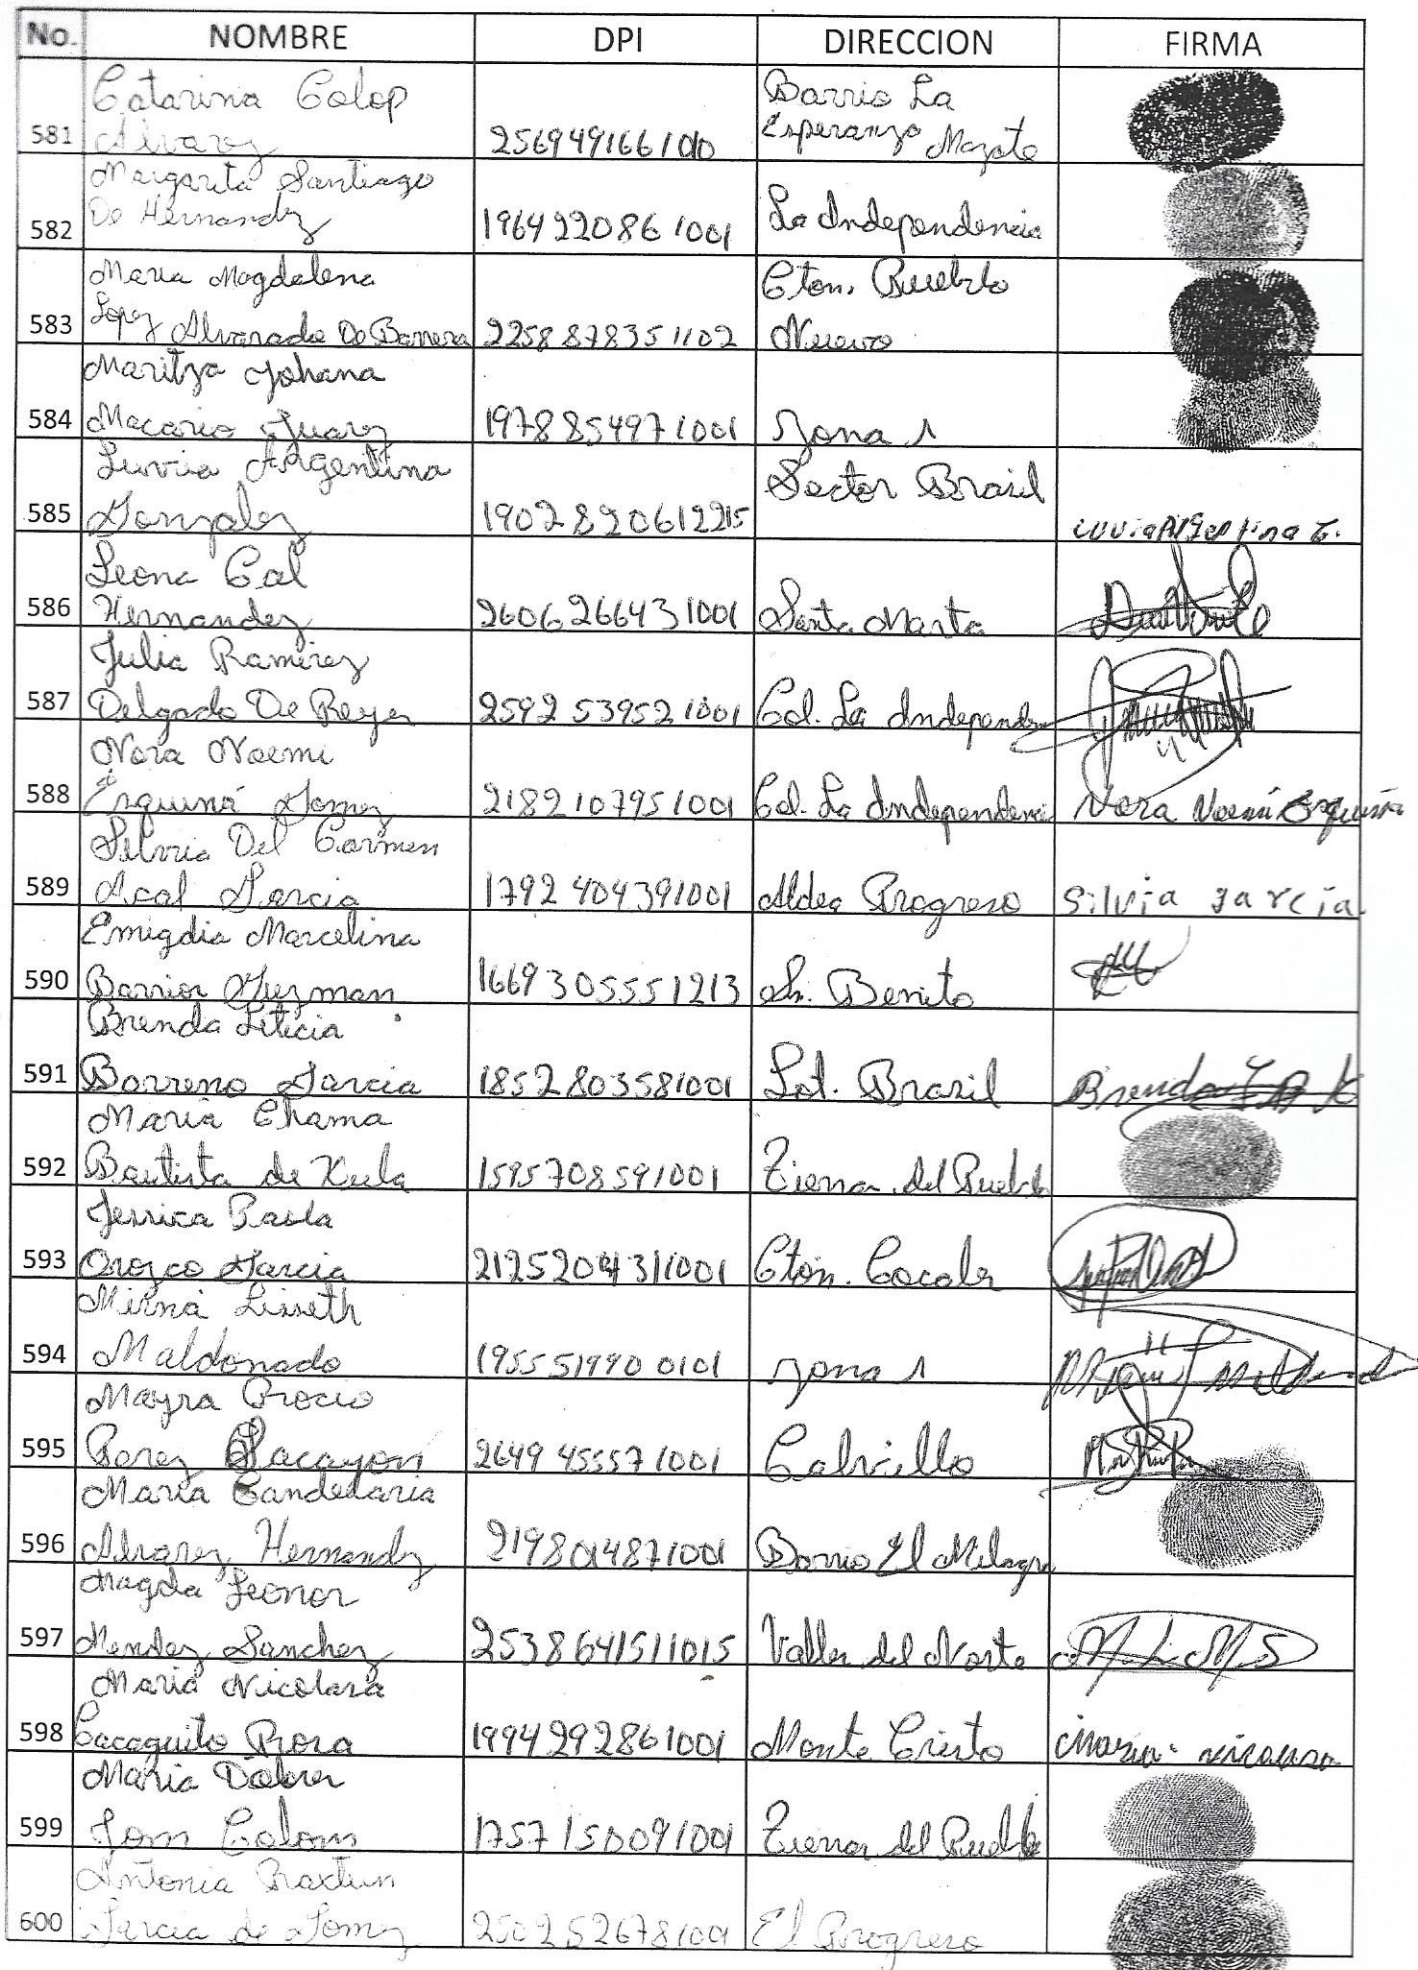 No. NOMBRE DPI DIRECCION FIRMA
Catarina Colop Barrio La
581 Alvarez 2569491661010 Esperanza Mazate
Margarita Santiago
582 De Hernandz 1964220861001 La Independencia
Maria Magdalena Cton. Pueblo
583 Lopez Alvarado De Barrera 2258878351102 Nuevo
Maritza Johana
584 Macario Juarez 1978854971001 zona 1
Luvia Argentina Sector Brasil
585 Gonzalez
Leona Cal
586 Hernandez 2606266431001 Santa Marta
Julia Ramirez
587 Delgado De Reyes 2592539521001 Col. La Independ
Nora Noemi
588 Esquiná Gomez 2182107951001 Col. La Independenci Nora Noemí Esquiná
Silvia Del Carmen
589 Acal Garcia 1792404391001 Aldea Progreso Silvia garcía
Emigdia Marcelina
590 Barrios Guzman 1669305551213 Sn. Benito
Brenda Leticia
591 Barreno Garcia 1852803581001 Lot. Brasil Brenda
Maria Chama
592 Bautista de Xula 1595708591001 Tierra del Pueblo
Jessica Paola
593 Orozco Garcia Cton. Cocales
Mirna Lisseth
594 Maldonado 1955519900101 zona 1
Mayra Rocio
595 Perez Sacayon 2649455571001 Calvillo
Maria Candelaria
596 Alvarez Hernandz 2198014871001 Barrio El Milagro
Magda Leonor
597 Mendez Sanchez 2538641511015 Valles del Norte
Maria Nicolasa
598 Cacaguito Rosa 1994292861001 Monte Cristo Maria
Maria Dolores
599 Colom 1757150091001 Tierra del Pueblo
Antonia Raxtun
600 Garcia de Gomez 2502526781001 El Progreso